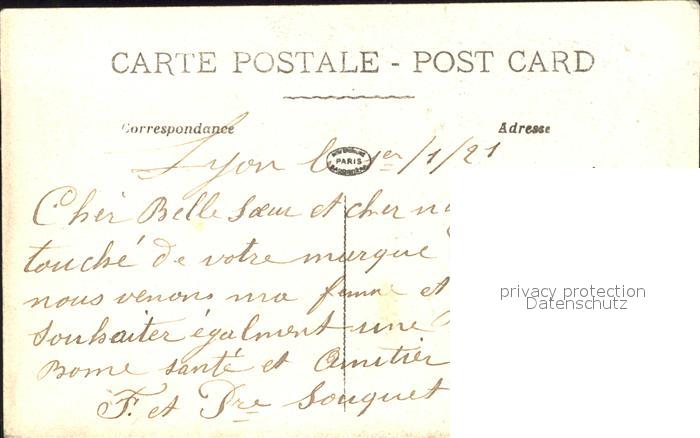 CARTE POSTALE - POST CARD
Correspondance
Adresse
PARIS
Lyon le 1er/1/21
Cher Belle Sœur et cher
touché de votre marque
nous venons ma femme et
souhaiter égalment une
Bonne santé et Amitier
F. et Souquet
privacy protection
Datenschutz